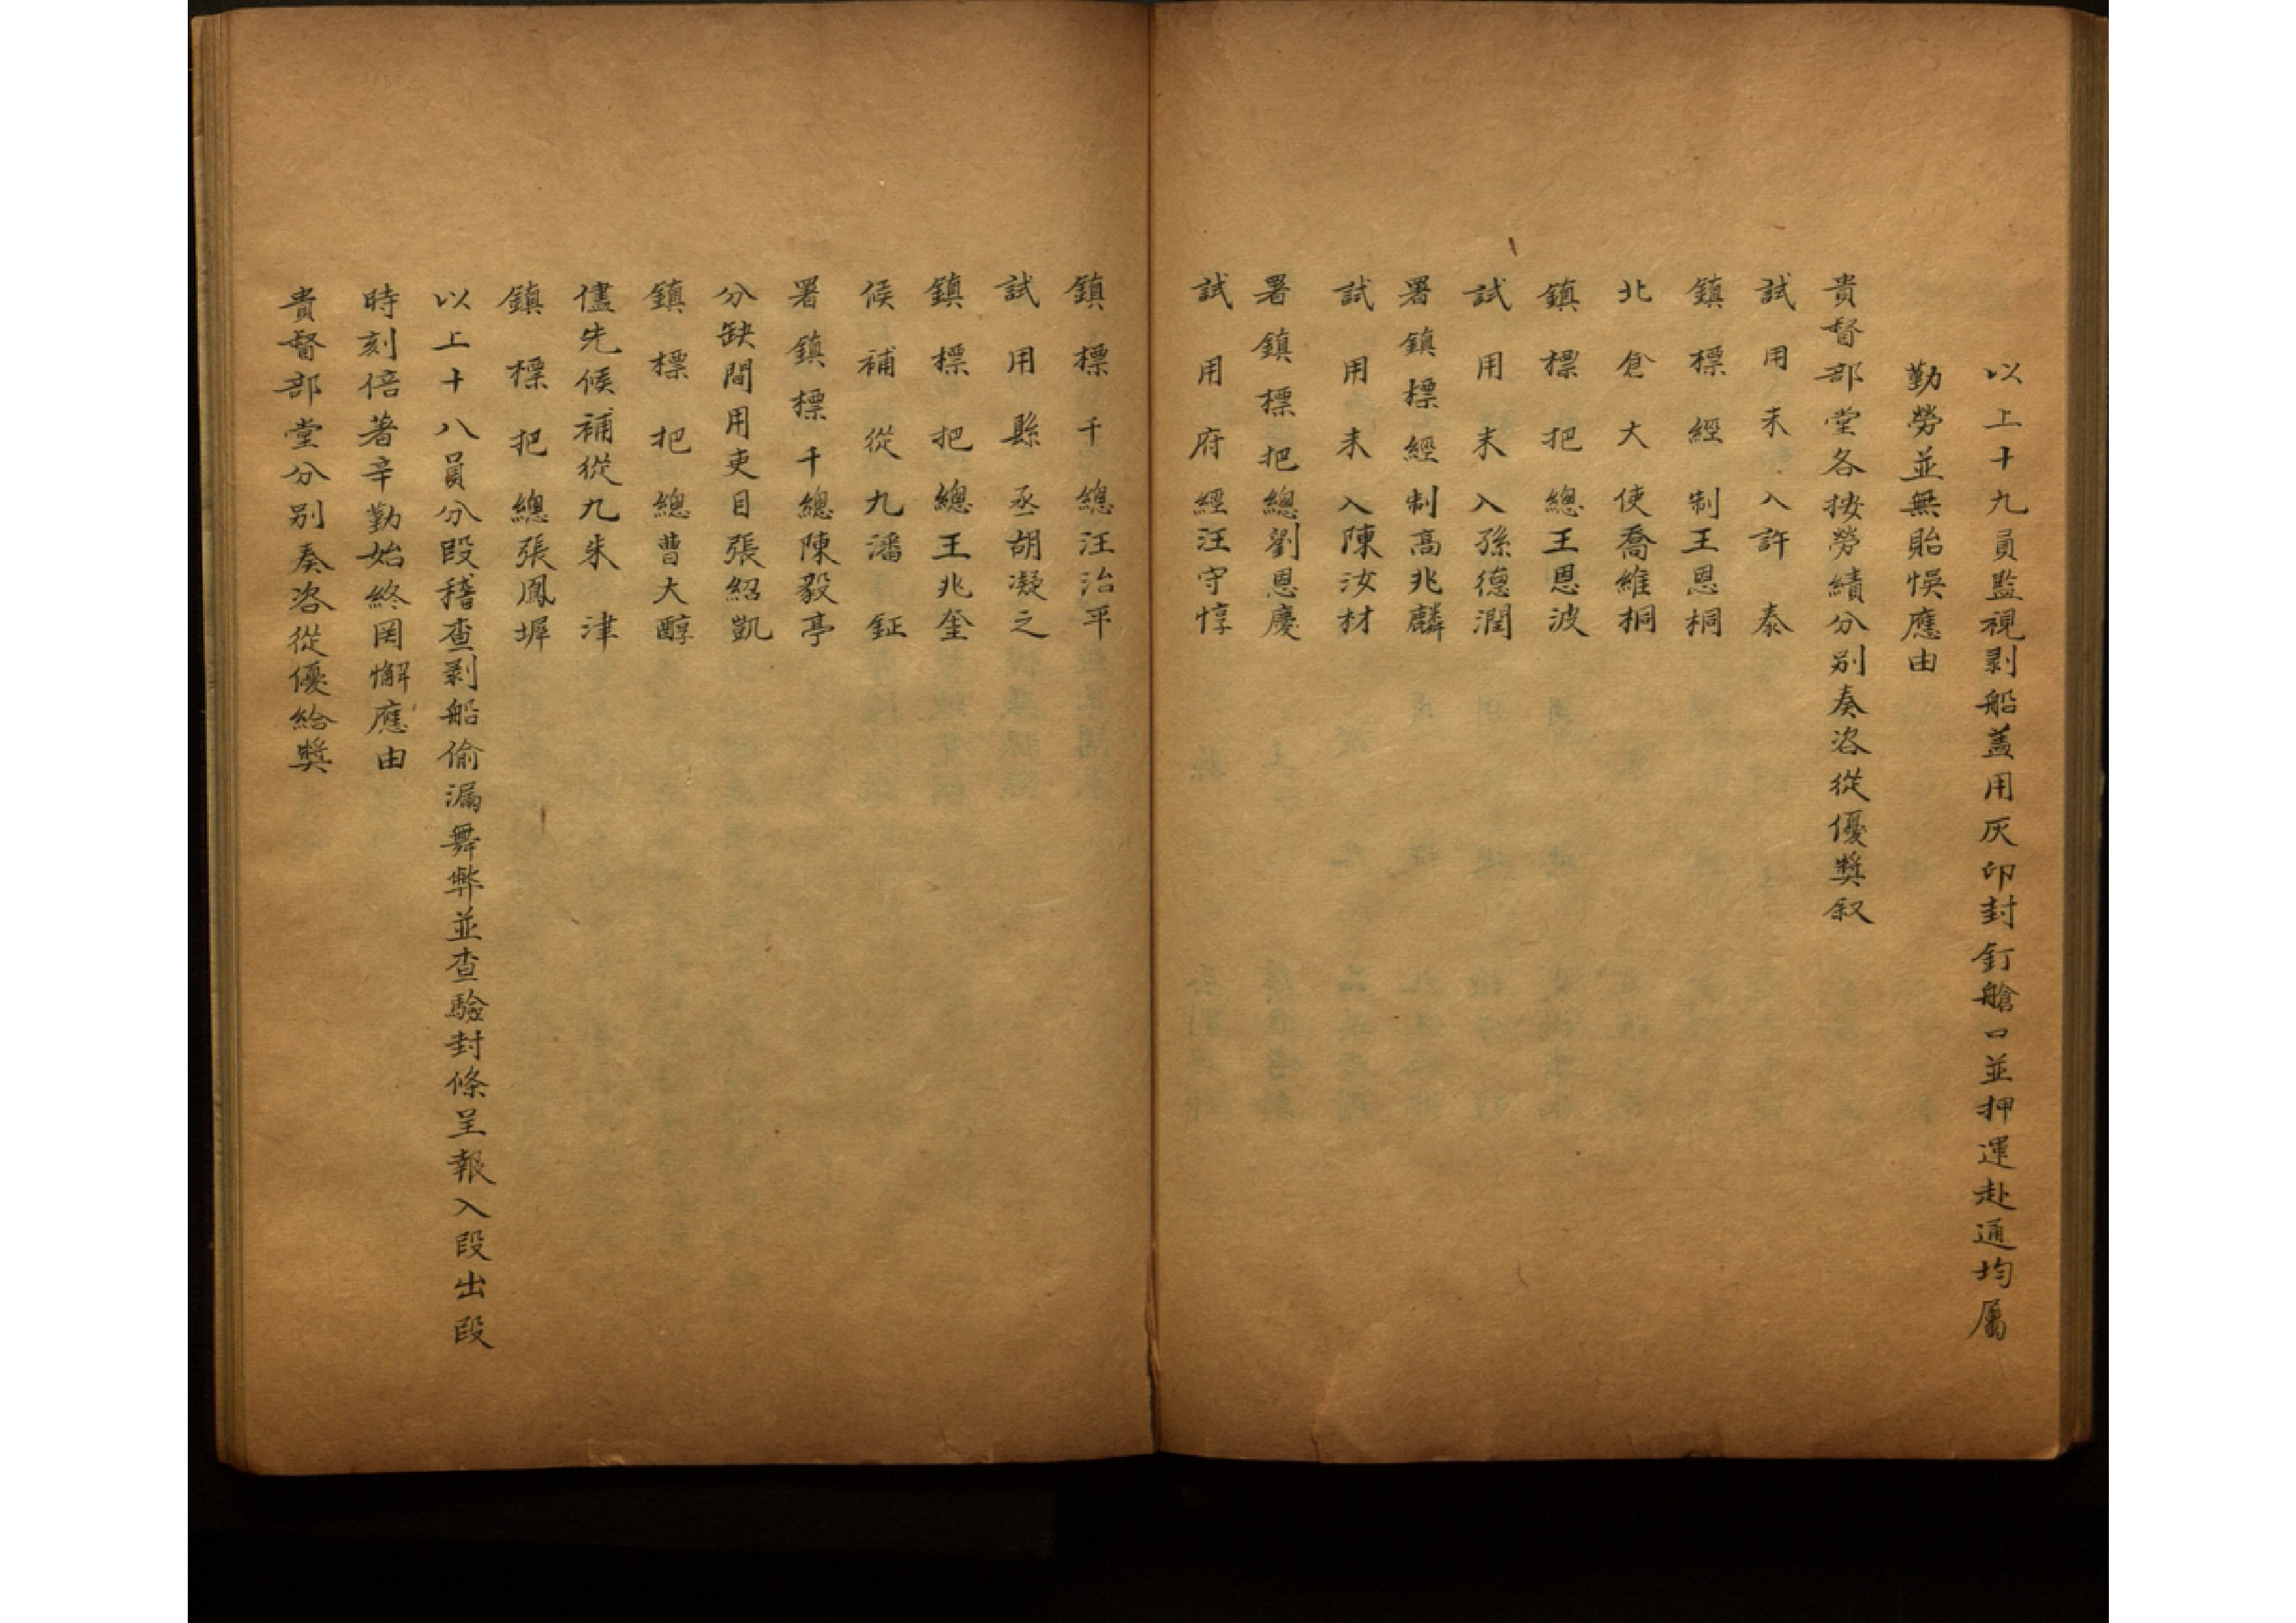 以上十九員監視剥船蓋用灰印封釘艙口並押運赴通均屬
勤勞並無貽悞應由
貴督部堂各按勞績分别奏咨從優奬叙
試用未入許泰
鎮標經制王恩桐
北倉大使喬維桐
鎮標把總王恩波
試用未入孫德潤
署鎮標經制高兆麟
試用未入陳汝材
署鎮標把總劉恩慶
試用府經汪守惇
鎮標千總汪治平
試用縣丞胡凝之
鎮標把總王兆奎
候補從九潘鉦
署鎮標千總陳毅亭
分缺間用吏目張紹凱
鎮標把總曹大醇
儘先候補從九朱津
鎮標把總張鳳墀
以上十八員分段稽查剥船偷漏舞弊並查驗封條呈報入段出段
時刻倍著辛勤始終罔懈應由
貴督部堂分别奏咨從優給奬